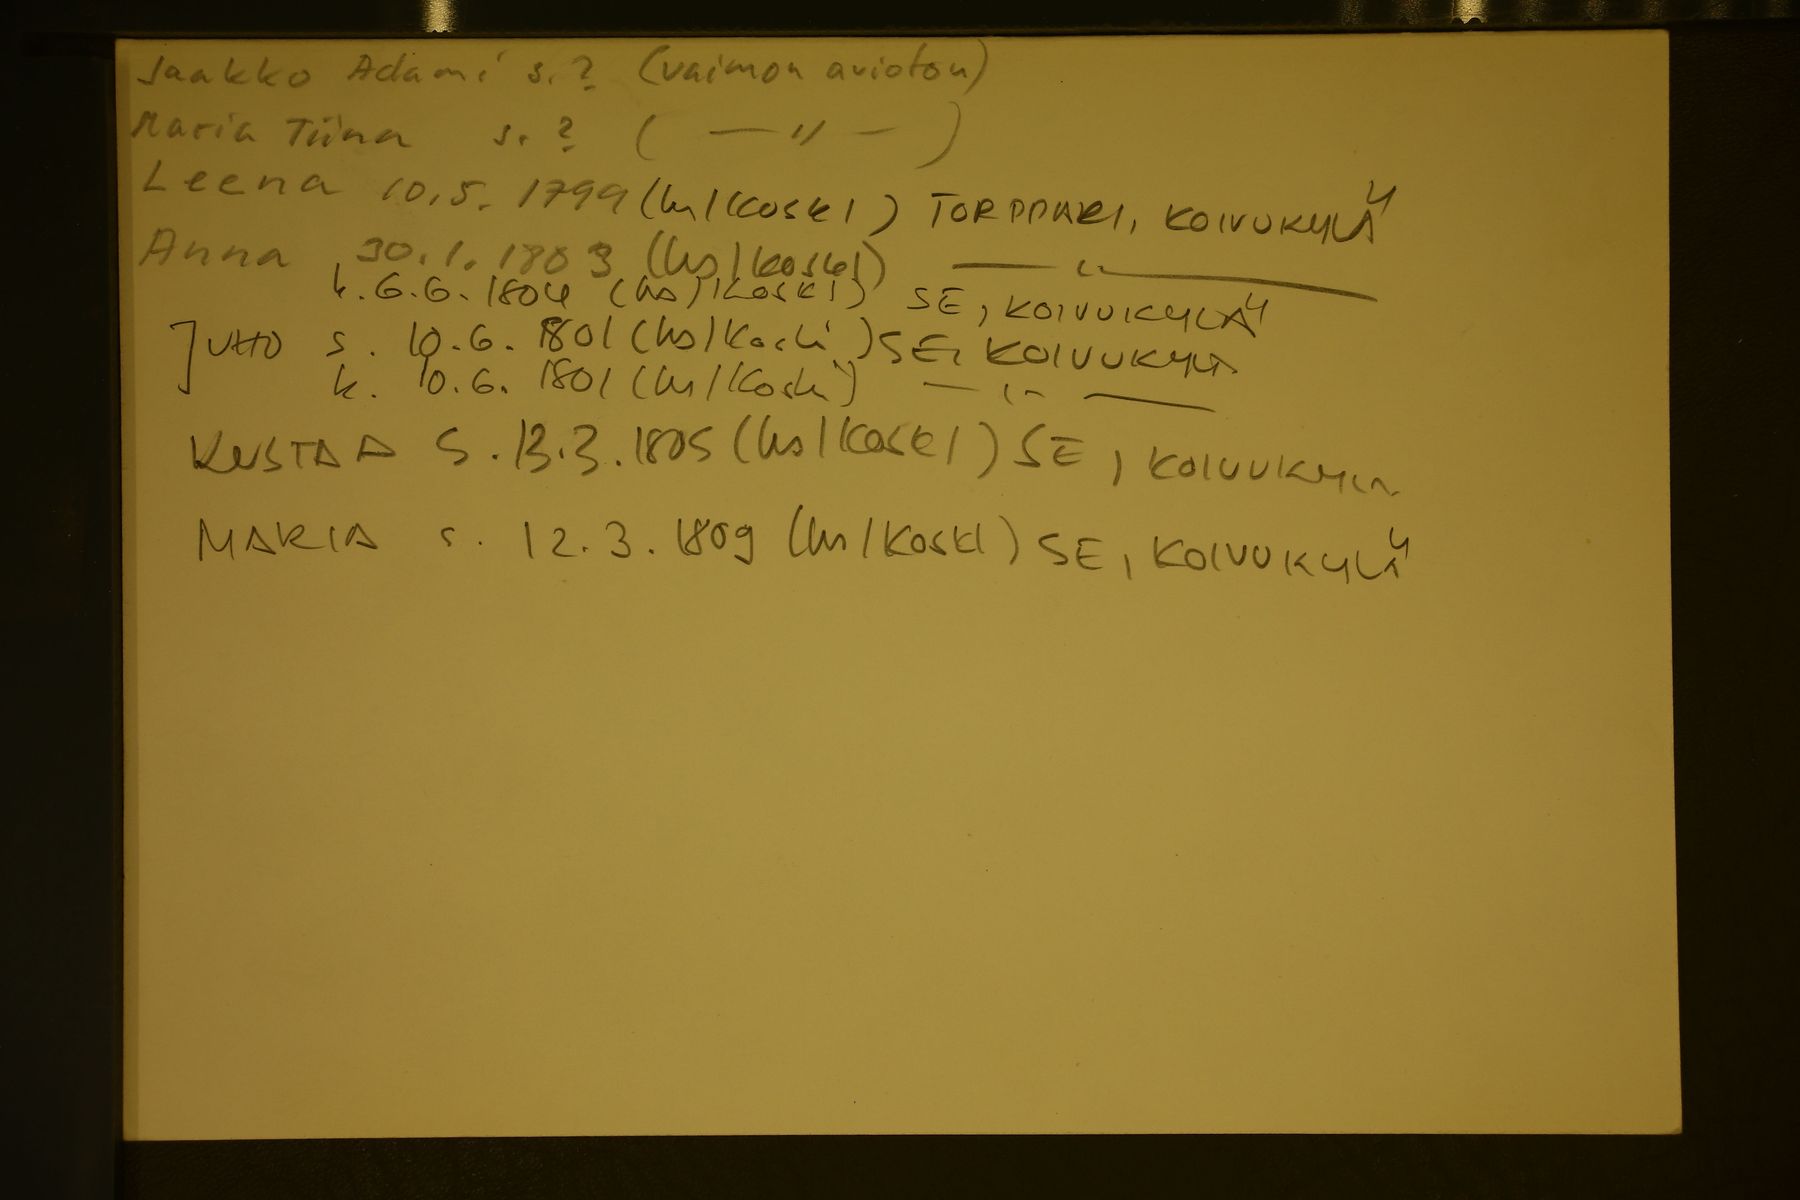 Jaakko Adami s. ? (vaimon avioton)
Maria Tiina s. ? ( — " — )
Leena 10.5. 1799 (hs/Koski) TORPPARI, KOIVUKYLÄ
Anna 30.1.1803 (hs/Koski) — " —
k. 6.6.1804 (hs/Koski) SE, KOIVUKYLÄ
JUHO s. 10.6.1801 (hs/Koski) SE, KOIVUKYLÄ
k. 10.6.1801 (hs/Koski) — " —
KUSTAA S. 13.3.1805 (hs/Koski) SE, KOIVUKYLÄ
MARIA s. 12.3.1809 (hs/Koski) SE, KOIVUKYLÄ